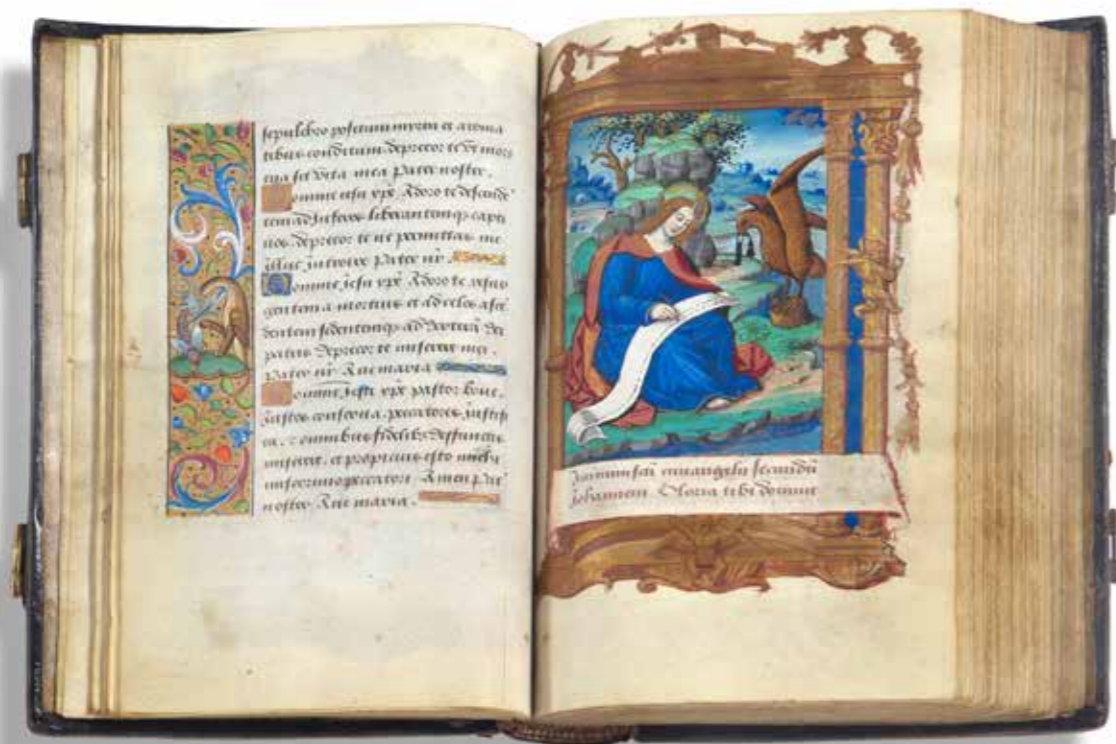 sepulchro positum mirra et aroma
tibus conditum deprecor te ut mors
tua sit vita mea pater noster.
Domine iesu xpe Adoro te descende
tem ad inferos liberantemqz capti
uos deprecor te ne permittas me
illuc introire Pater nr
Domine iesu xpe Adoro te resur
gentem a mortuis et ad celos asce
dentem sedentemqz ad dexteram dei
patris deprecor te miserere mei.
Pater nr Aue maria
Domine iesu xpe pastor bone,
iustos conserua. peccatores iustifi
ca. omnibus fidelibs deffunctis
miserere. et propicius esto michi
misserrimo peccatori. Amen Pat
noster Aue maria.
Inicium scti euuangelii secundu
Johannem Gloria tibi domine